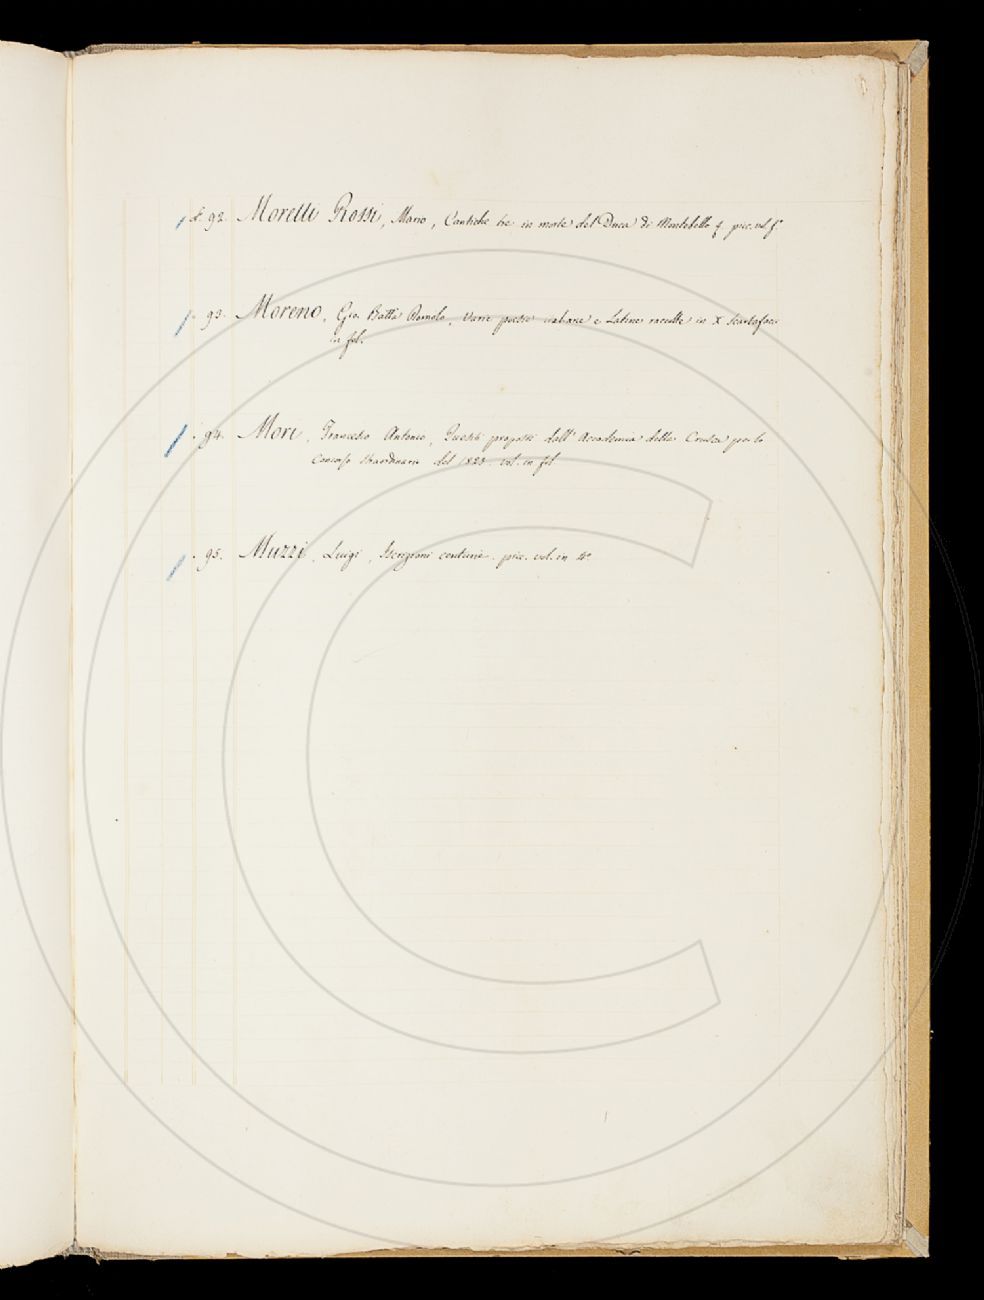 N. 92. Moretti Rossi, Mario, Cantiche tre in morte del Duca di Montebello &. pic. vol. f.°
" 93. Moreno, Gio. Batta Romolo, Varie poesie italiane e Latine raccolte in X Scartafacci
in fol.
" 94. Mori, Francesco Antonio, Quesiti proposti dall' Accademia della Crusca per lo
Concorso straordinario del 1823. vol. in fol
" 95. Muzzi, Luigi, Iscrizioni centurie. pic. vol. in 4°